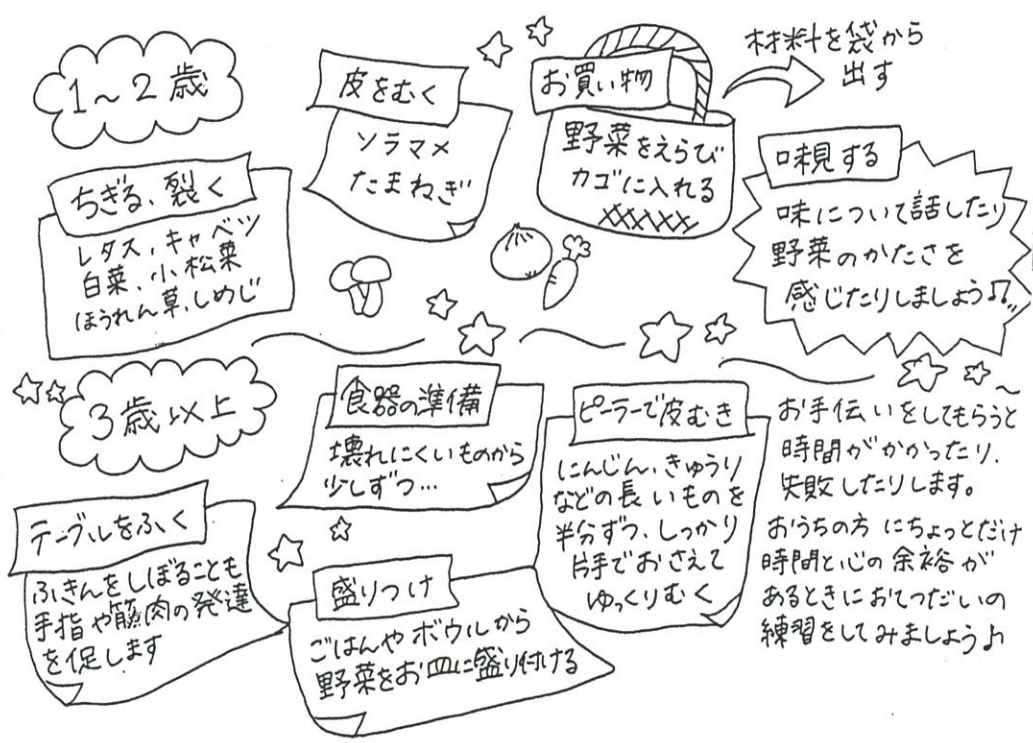 1〜2歳
ちぎる、裂く
レタス、キャベツ
白菜、小松菜
ほうれん草、しめじ
皮をむく
ソラマメ
たまねぎ
お買い物
野菜をえらび
カゴに入れる
材料を袋から
出す
味見する
味について話したり
野菜のかたさを
感じたりしましょう♫
3歳以上
テーブルをふく
ふきんをしぼることも
手指や筋肉の発達
を促します
食器の準備
壊れにくいものから
少しずつ…
盛りつけ
ごはんやボウルから
野菜をお皿に盛り付ける
ピーラーで皮むき
にんじん、きゅうり
などの長いものを
半分ずつ、しっかり
片手でおさえて
ゆっくりむく
お手伝いをしてもらうと
時間がかかったり、
失敗したりします。
おうちの方にちょっとだけ
時間と心の余裕が
あるときにおてつだいの
練習をしてみましょう♪